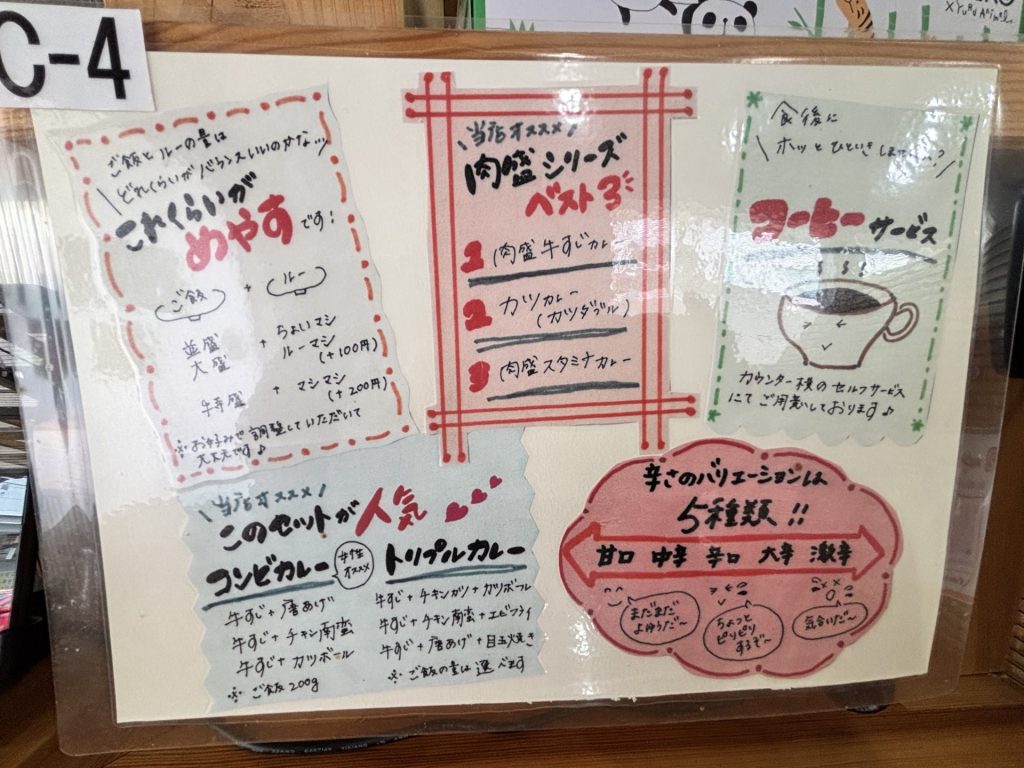 C-4
ご飯とルーの量は
どれくらいがバランスいいのかな…
これくらいが
めやすです!
ご飯 + ルー
並盛
大盛
+ ちょいマシ
ルーマシ
(+100円)
特盛 + マシマシ
(+200円)
※お好みで調整していただいて
大丈夫です♪
当店オススメ!
肉盛シリーズ
ベスト3
1 肉盛牛すじカレー
2 カツカレー
(カツダブル)
3 肉盛スタミナカレー
食後に
ホッとひといき
コーヒーサービス
カウンター横のセルフサービス
にてご用意しております♪
当店オススメ!
このセットが人気
コンビカレー
女性
オススメ
牛すじ+唐あげ
牛すじ+チキン南蛮
牛すじ+カツボール
※ご飯200g
トリプルカレー
牛すじ+チキンカツ+カツボール
牛すじ+チキン南蛮+エビフライ
牛すじ+唐あげ+目玉焼き
※ご飯の量は選べます
辛さのバリエーションは
5種類!!
甘口 中辛 辛口 大辛 激辛
まだまだ
よゆうだ〜
ちょっと
ピリピリ
するぞ〜
気合いだ〜